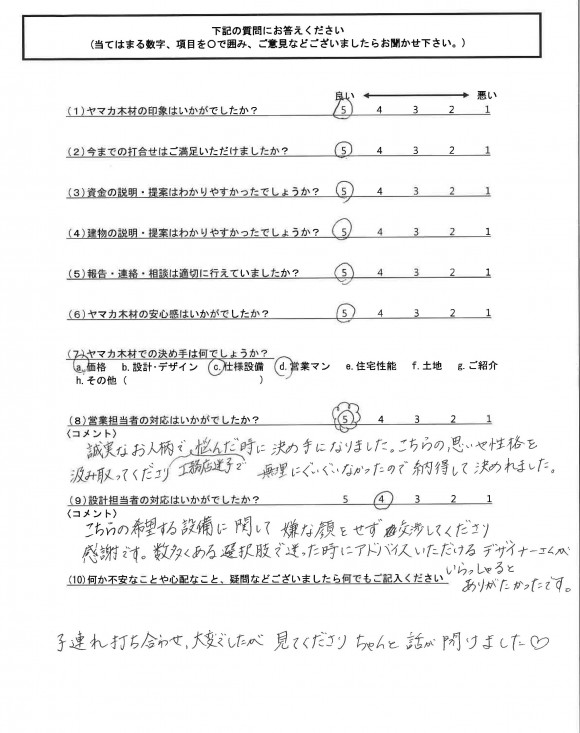 下記の質問にお答えください
(当てはまる数字、項目を○で囲み、ご意見などございましたらお聞かせ下さい。)
良い 悪い
(1)ヤマカ木材の印象はいかがでしたか? 5 4 3 2 1
(2)今までの打合せはご満足いただけましたか? 5 4 3 2 1
(3)資金の説明・提案はわかりやすかったでしょうか? 5 4 3 2 1
(4)建物の説明・提案はわかりやすかったでしょうか? 5 4 3 2 1
(5)報告・連絡・相談は適切に行えていましたか? 5 4 3 2 1
(6)ヤマカ木材の安心感はいかがでしたか? 5 4 3 2 1
(7)ヤマカ木材での決め手は何でしょうか?
a.価格 b.設計・デザイン c.仕様設備 d.営業マン e.住宅性能 f.土地 g.ご紹介
h.その他( )
(8)営業担当者の対応はいかがでしたか? 5 4 3 2 1
(コメント)
誠実なお人柄で、悩んだ時に決め手になりました。こちらの思いや性格を
工務店選びで
汲み取ってくださり 無理にぐいぐいなかったので納得して決めれました。
(9)設計担当者の対応はいかがでしたか? 5 4 3 2 1
(コメント)
こちらの希望する設備に関して 嫌な顔をせず 交渉してくださり
感謝です。数多くある選択肢で迷った時にアドバイスいただけるデザイナーさんが
いらっしゃると
ありがたかったです。
(10)何か不安なことや心配なこと、疑問などございましたら何でもご記入ください
子連れ打ち合わせ、大変でしたが 見てくださり ちゃんと 話が 聞けました♡